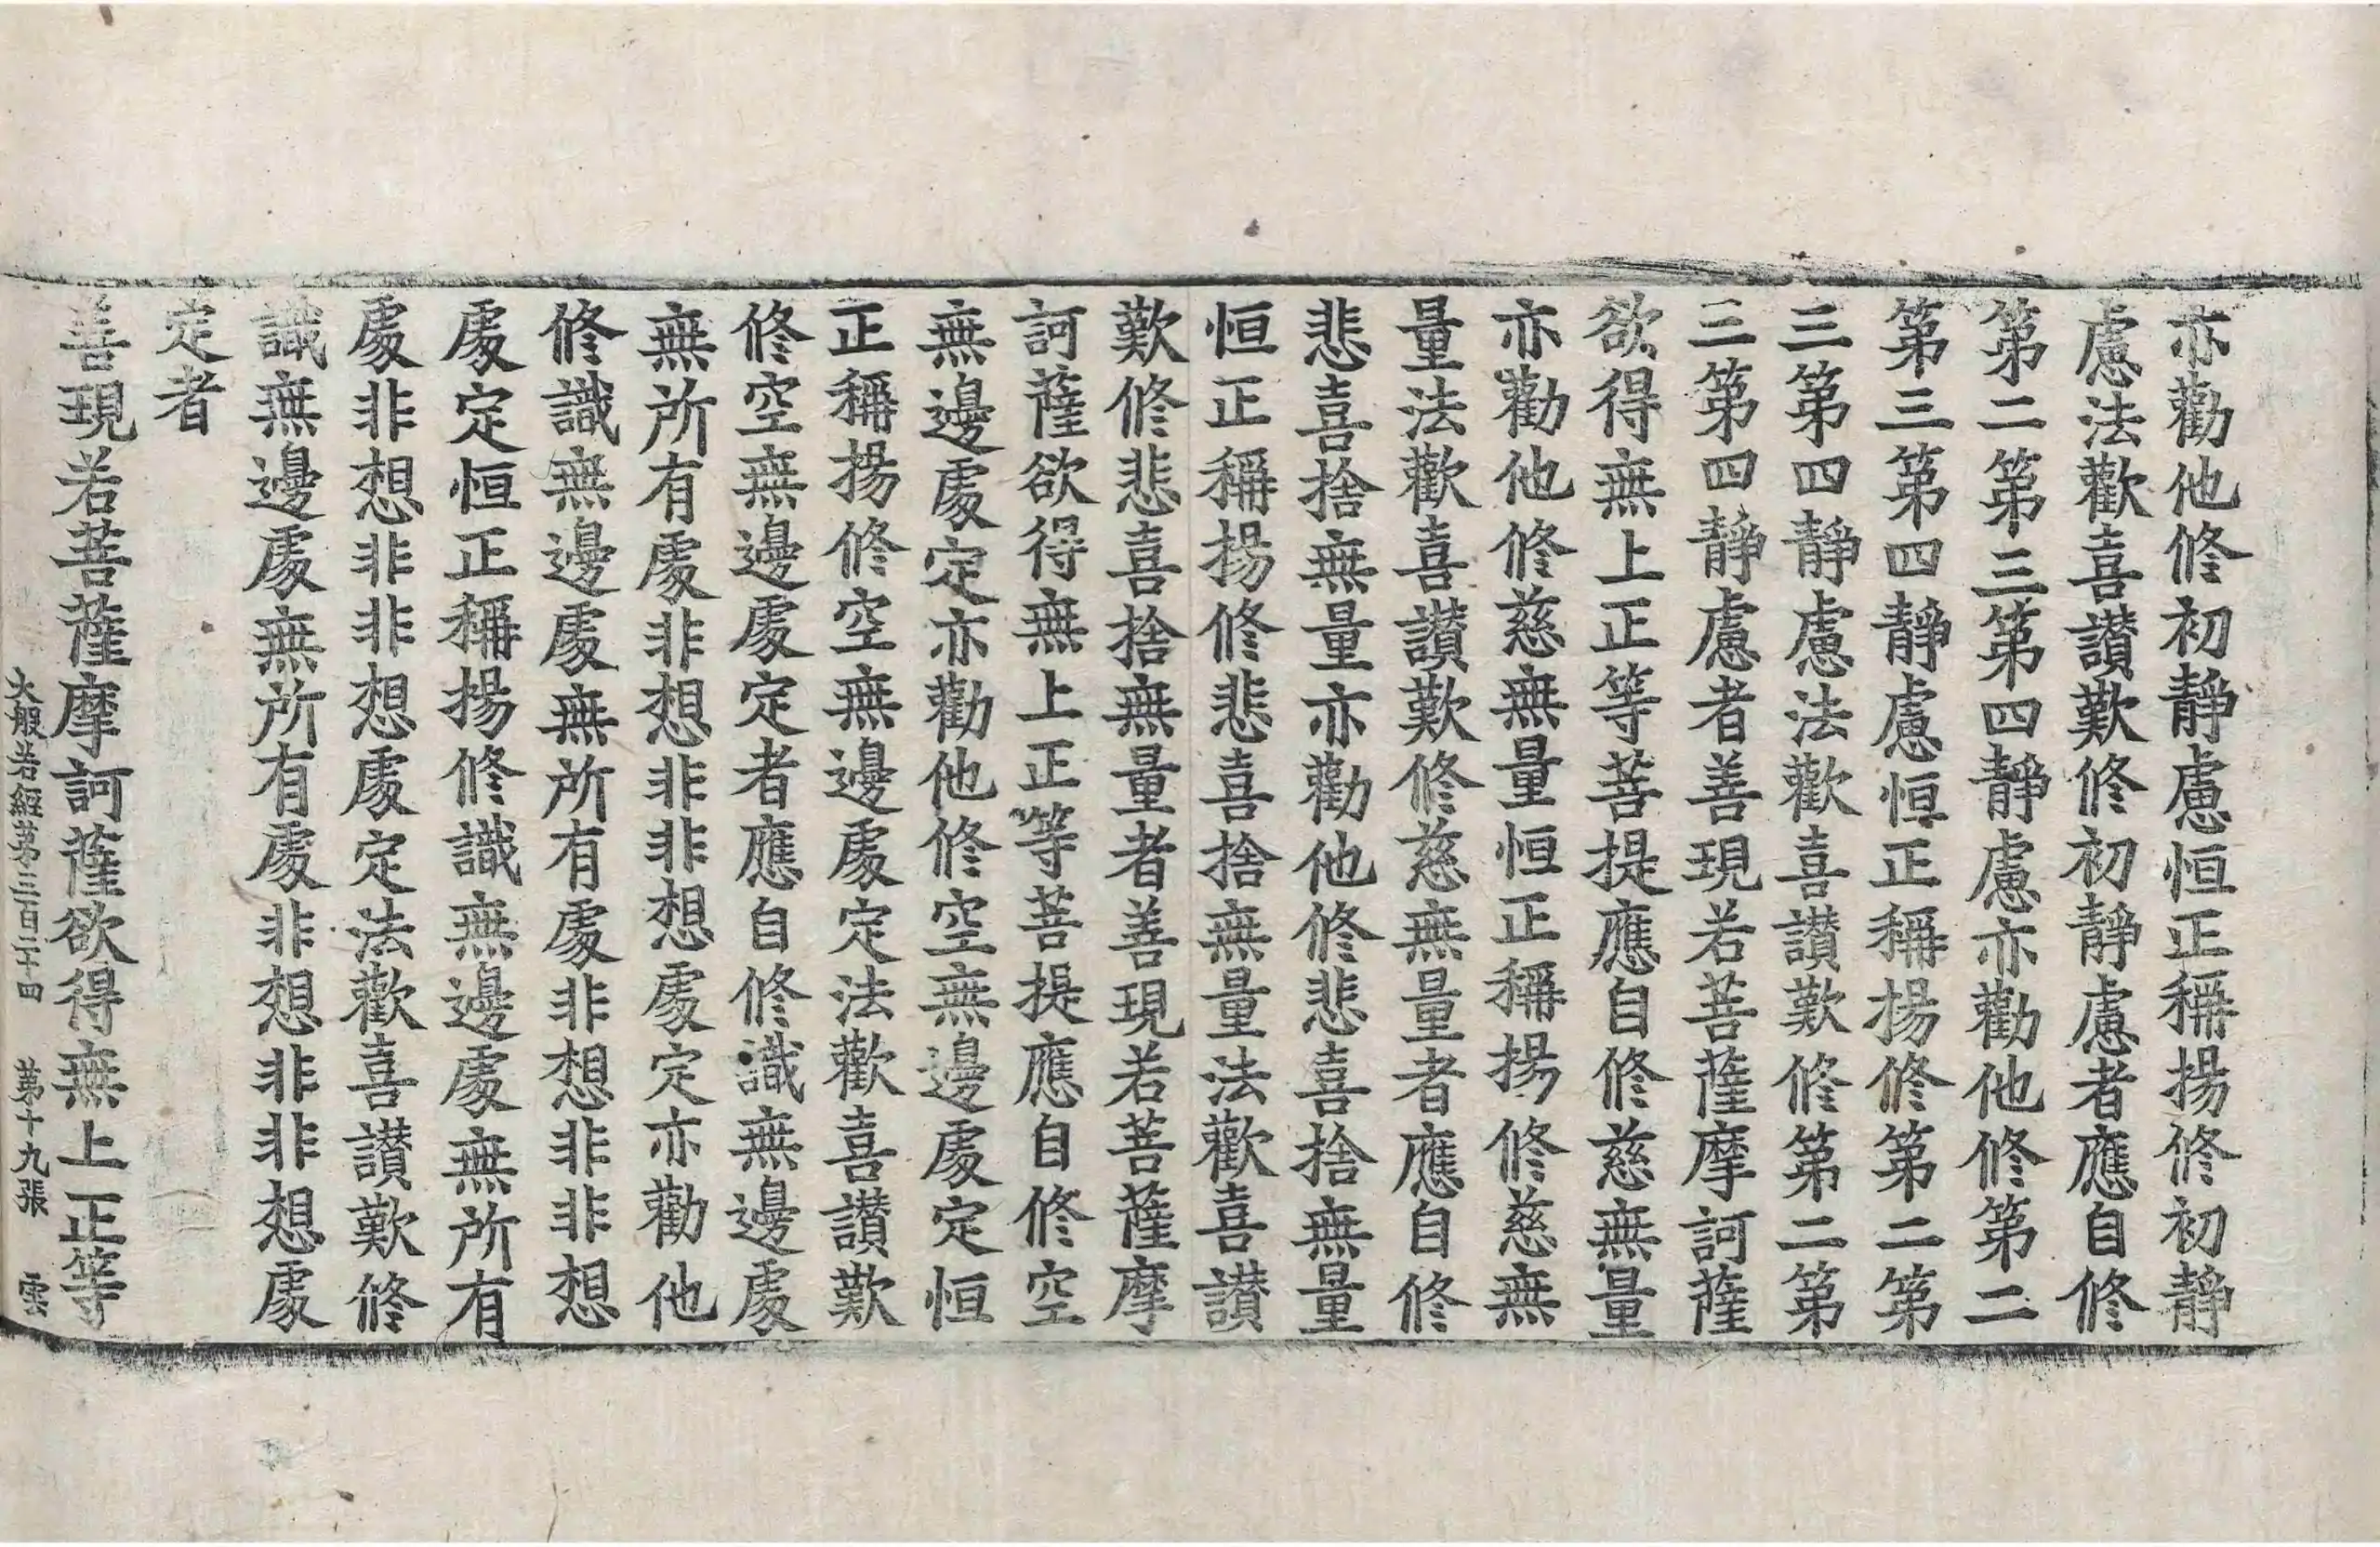 亦勸他修初靜慮恒正稱揚修初靜
慮法歡喜讃歎修初靜慮者應自修
第二第三第四靜慮亦勸他修第二
第三第四靜慮恒正稱揚修第二第
三第四靜慮法歡喜讃歎修第二第
三第四靜慮者善現若菩薩摩訶薩
欲得無上正等菩提應自修慈無量
亦勸他修慈無量恒正稱揚修慈無
量法歡喜讃歎修慈無量者應自修
悲喜捨無量亦勸他修悲喜捨無量
恒正稱揚修悲喜捨無量法歡喜讃
歎修悲喜捨無量者善現若菩薩摩
訶薩欲得無上正等菩提應自修空
無邊處定亦勸他修空無邊處定恒
正稱揚修空無邊處定法歡喜讃歎
修空無邊處定者應自修識無邊處
無所有處非想非非想處定亦勸他
修識無邊處無所有處非想非非想
處定恒正稱揚修識無邊處無所有
處非想非非想處定法歡喜讃歎修
識無邊處無所有處非想非非想處
定者
善現若菩薩摩訶薩欲得無上正等
大般若經第三百二十四 第十九張 雲